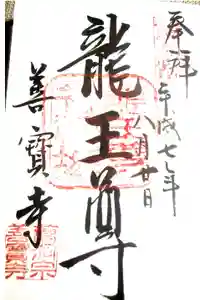 奉拝
平成七年
八月廿日
龍王尊
善寳寺